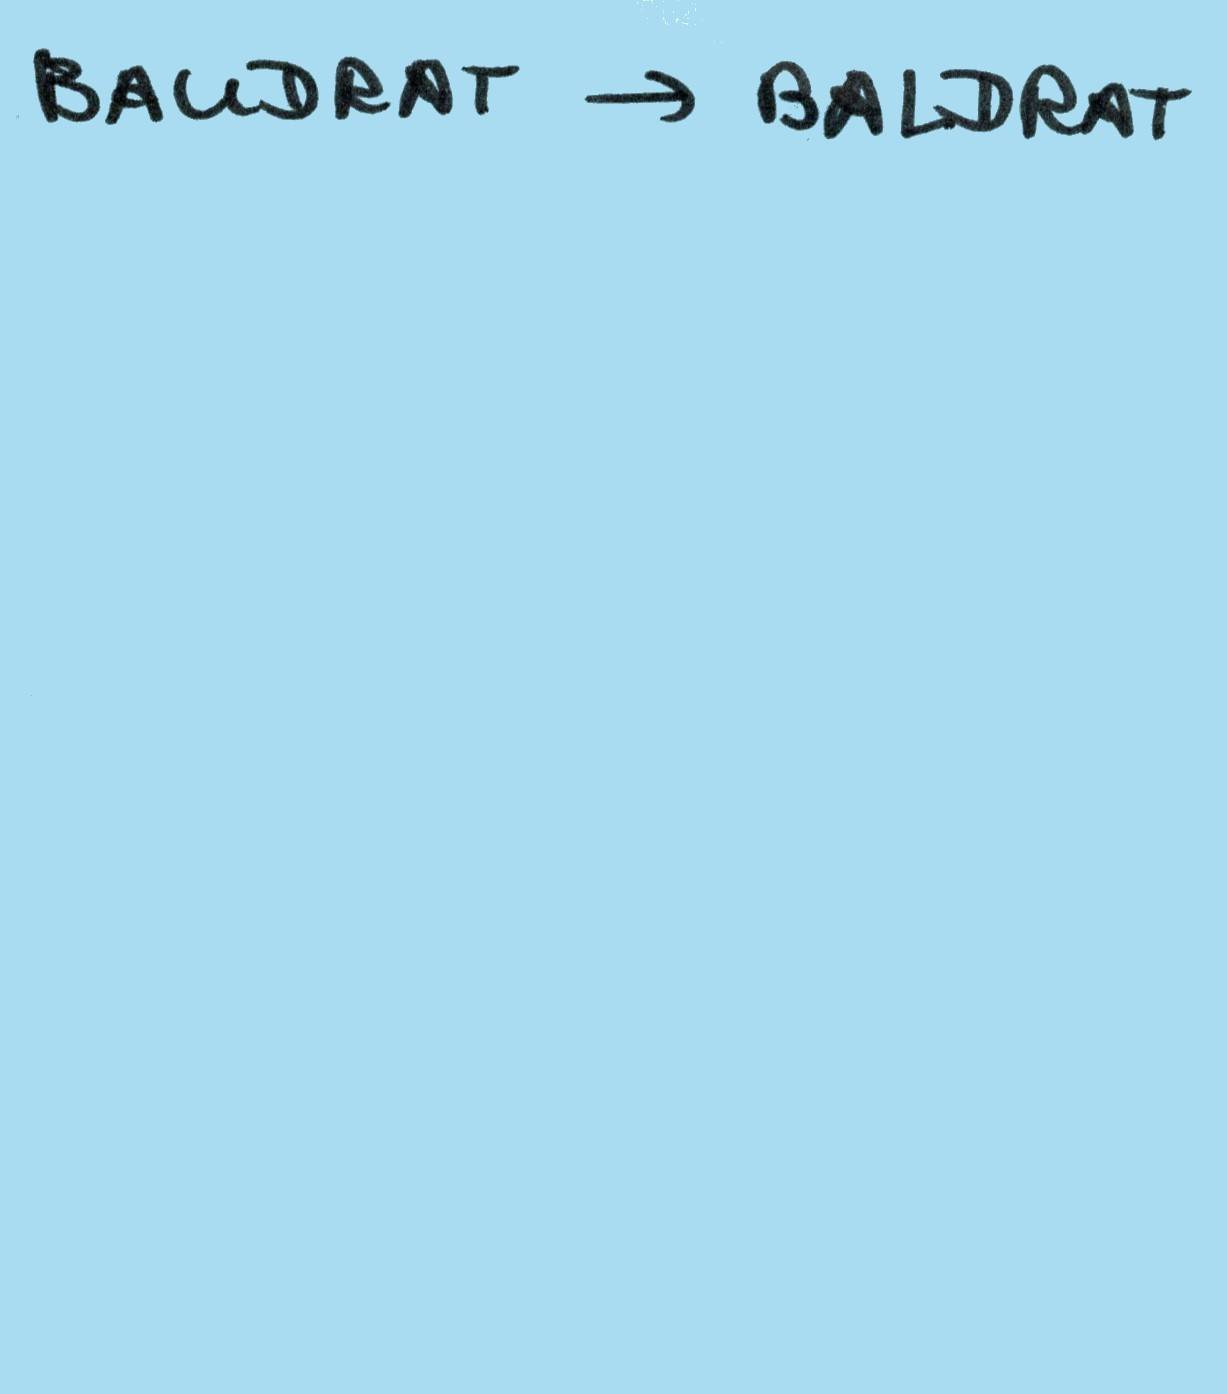 BAUDRAT → BALDRAT